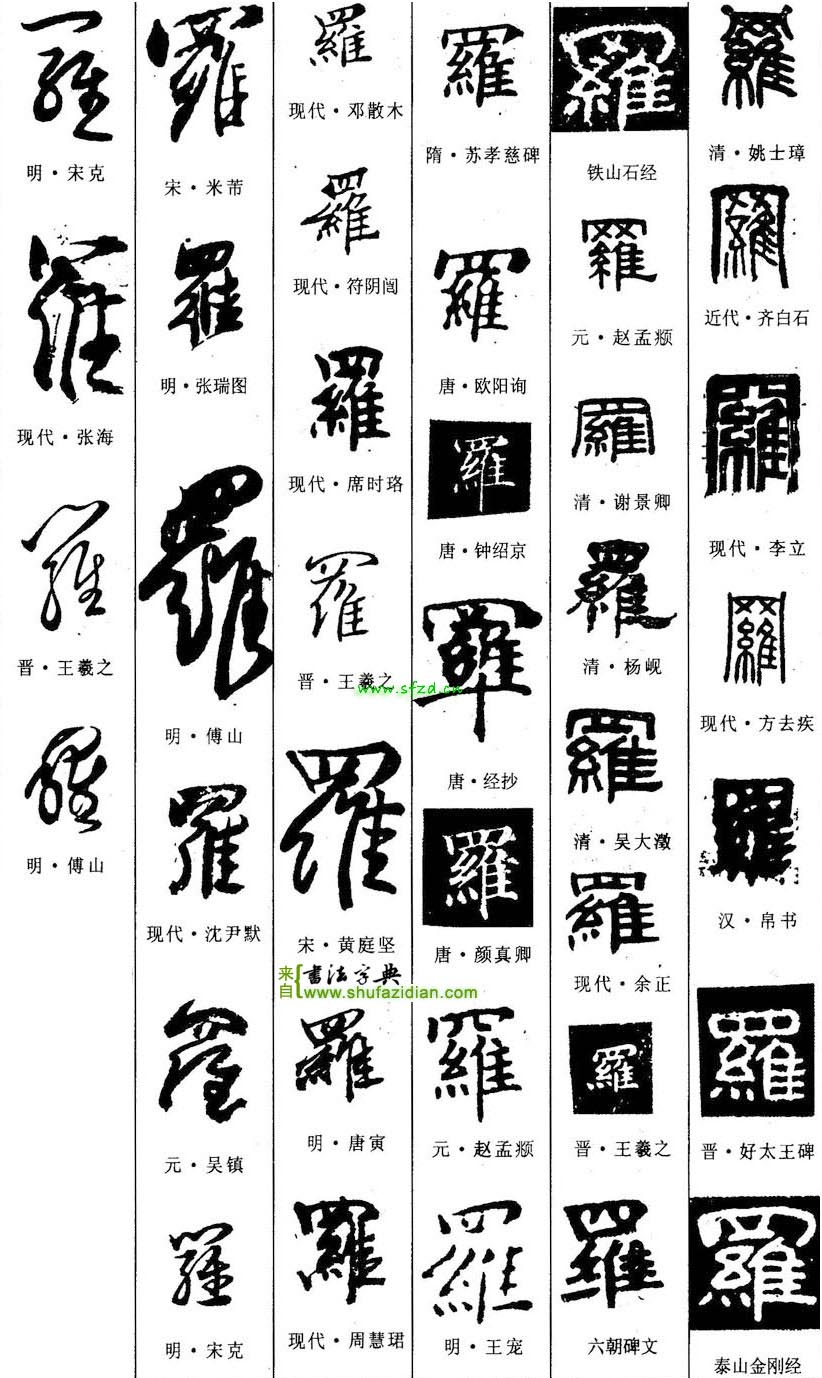 羅
明·宋克
羅
现代·张海
羅
晋·王羲之
羅
明·傅山
羅
宋·米芾
羅
明·张瑞图
羅
明·傅山
羅
现代·沈尹默
羅
元·吴镇
羅
明·宋克
羅
现代·邓散木
羅
现代·符阴闿
羅
现代·席时珞
羅
晋·王羲之
www.sfzd.cn
羅
宋·黄庭坚
来自{書法字典
www.shufazidian.com
羅
明·唐寅
羅
现代·周慧珺
羅
隋·苏孝慈碑
羅
唐·欧阳询
羅
唐·钟绍京
羅
唐·经抄
羅
唐·颜真卿
羅
元·赵孟頫
羅
明·王宠
羅
铁山石经
羅
元·赵孟頫
羅
清·谢景卿
羅
清·杨岘
羅
清·吴大澂
羅
现代·余正
羅
晋·王羲之
羅
六朝碑文
羅
清·姚士璋
羅
近代·齐白石
羅
现代·李立
羅
现代·方去疾
羅
汉·帛书
羅
晋·好太王碑
羅
泰山金刚经